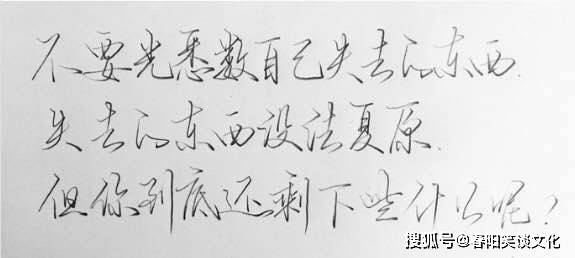 不要光悉数自己失去的东西.
失去的东西设法夏原.
但你到底还剩下些什么呢?
搜狐号@春阳笑谈文化